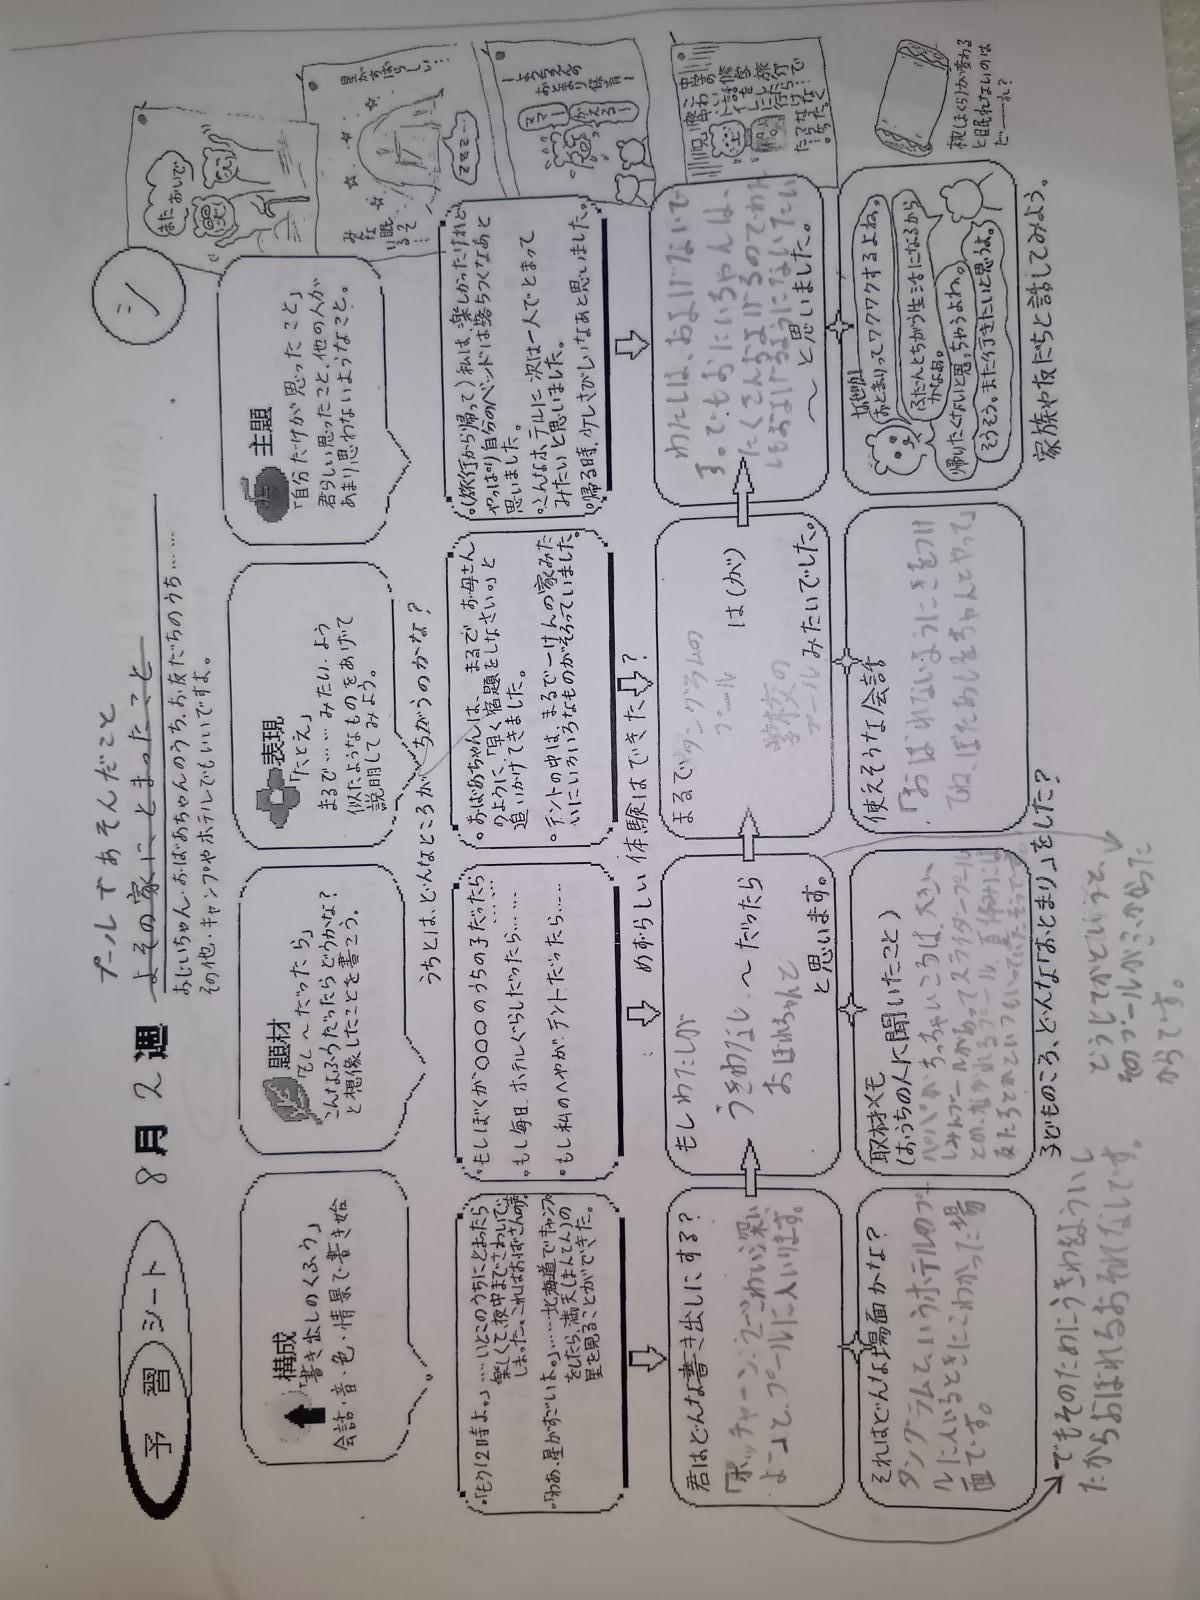 予習シート 8月2週
プールであそんだこと
よその家にとまったこと
おじいちゃん・おばあちゃんのうち、お友だちのうち……
その他・キャンプやホテルでもいいですよ。
シ
構成
「書き出しのくふう」
会話・音・色・情景で書き始
題材
「もし〜だったら」
こんなふうだったらどうかな?
と想像したことを書こう。
表現
「たとえ」
まるで……みたい、よう
似たようなものをあげて
説明してみよう。
主題
「自分だけが思ったこと」
君らしい思ったこと、他の人が
あまり思わないようなこと。
うちとは、どんなところがちがうのかな?
・「もう12時よ。」…いとこのうちにとまったら
楽しくて夜中までさわいで
しまった。これはおばさんの声
・「わあ、星がすごいよ。」……北海道でキャンプ
をしたら、満天(まんてん)の
星を見ることができた。
・もしぼくが〇〇〇のうちの子だったら……
・もし毎日、ホテルぐらしだったら……
・もし私のへやが、テントだったら……
・おばあちゃんは、まるでお母さん
のように、「早く宿題をしなさい。」と
追いかけてきました。
・テントの中は、まるで一けんの家みた
いにいろいろなものがそろっていました。
・(旅行から帰って)私は、楽しかったけれど
やっぱり自分のベッドは落ちつくなあと
思いました。
・こんなホテルに次は一人でとまって
みたいと思いました。
・帰る時、少しさびしいなあと思いました。
めずらしい体験はできた?
君はどんな書き出しにする?
「ボッチャーン…そこがわい深い
よー」と、プールに入いります。
もしわたしが
うきわなし〜だったら
おぼれちゃんと
と思います。
まるでタングラムの
プール
は(が)
学校の
プールみたいでした。
わたしは、およげないで
す。でもおにいちゃんは、
たくさんおよげるのでわたし
もおよげるようになりたい
〜と思いました。
それはどんな場面かな?
タングラムというホテルのプー
ルに入いるときにこわかった場
面です。
取材メモ
(おうちの人に聞いたこと)
パパがちっちゃいころは、大きい
しみんプールがあってスライダープール
とか、ながれるプール、夏休みには
使えそうな会話
「おぼれないようにきをつけ
てね、ぼためしをちゃんとやって」
なぜか
おとまりってワクワクするよね。
ふだんとちがう生活になるから
かなあ。
帰りたくないと思っちゃうよね。
そうそう。また行きたいと思うよ。
子どものころ、どんな「おとまり」をした?
家族や友だちと話してみよう。
でもそのためにうきわをよういし
たからおぼれるおそれなしです。
どうしてかというと、
そのプールがふかかった
からです。
またおいで
星がすばらしい…
みんな眠るぞ…
ZZZ…
ようちえんの
おとまり保育
ママー
かえるー
枕(まくら)が変わる
と眠れないのは
どーーれ?